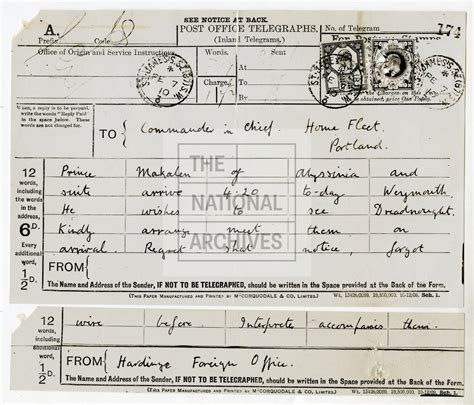 SEE NOTICE AT BACK.
A.
POST OFFICE TELEGRAPHS.
(Inland Telegrams.)
No. of Telegram
174
Prefix
Code
Office of Origin and Service Instructions.
Words
Sent
At
To
By
When a reply is to be prepaid
write the words "Reply Paid"
in the space below. These
words are not charged for.
TO
Commander in Chief. Home Fleet.
Portland.
12
words,
including
the words
in the
address
6D.
Every
additional
word.
½D.
Prince Makalen of Abyssinia and
suite arrive 4.20 to-day Weymouth.
He wishes to see Dreadnought.
Kindly arrange meet them on
arrival Regret that notice, forgot
FROM
The Name and Address of the Sender, IF NOT TO BE TELEGRAPHED, should be written in the Space provided at the Back of the Form.
(THIS PAPER MANUFACTURED AND PRINTED BY McCORQUODALE & CO., LIMITED.)
12
words
including
additional
word.
½D.
wire before. Interprete accompanies them.
FROM
Hardinge Foreign Office.
The Name and Address of the Sender, IF NOT TO BE TELEGRAPHED, should be written in the Space provided at the Back of the Form.
(THIS PAPER MANUFACTURED AND PRINTED BY McCORQUODALE & CO., LIMITED.)
THE
NATIONAL
ARCHIVES